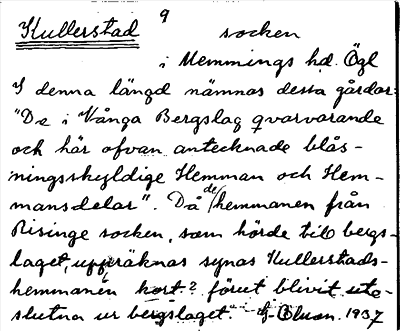 Kullerstad 9 socken
i Memmings hd. Ögl
I denna längd nämnas dessa gårdar:
"De i Vånga Bergslag qvarvarande
och här ofvan antecknade blås-
ningsskyldige Hemman och Hem-
mansdelar". Då de hemmanen från
Risinge socken, som hörde till bergs-
laget, uppräknas synas Kullerstads-
hemmanen kort? förut blivit ute-
slutna ur bergslaget. 1937